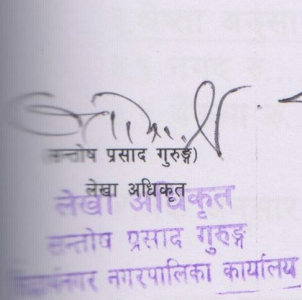 (सन्तोष प्रसाद गुरुङ्ग)
लेखा अधिकृत
लेखा अधिकृत
सन्तोष प्रसाद गुरुङ्ग
नगरपालिका कार्यालय